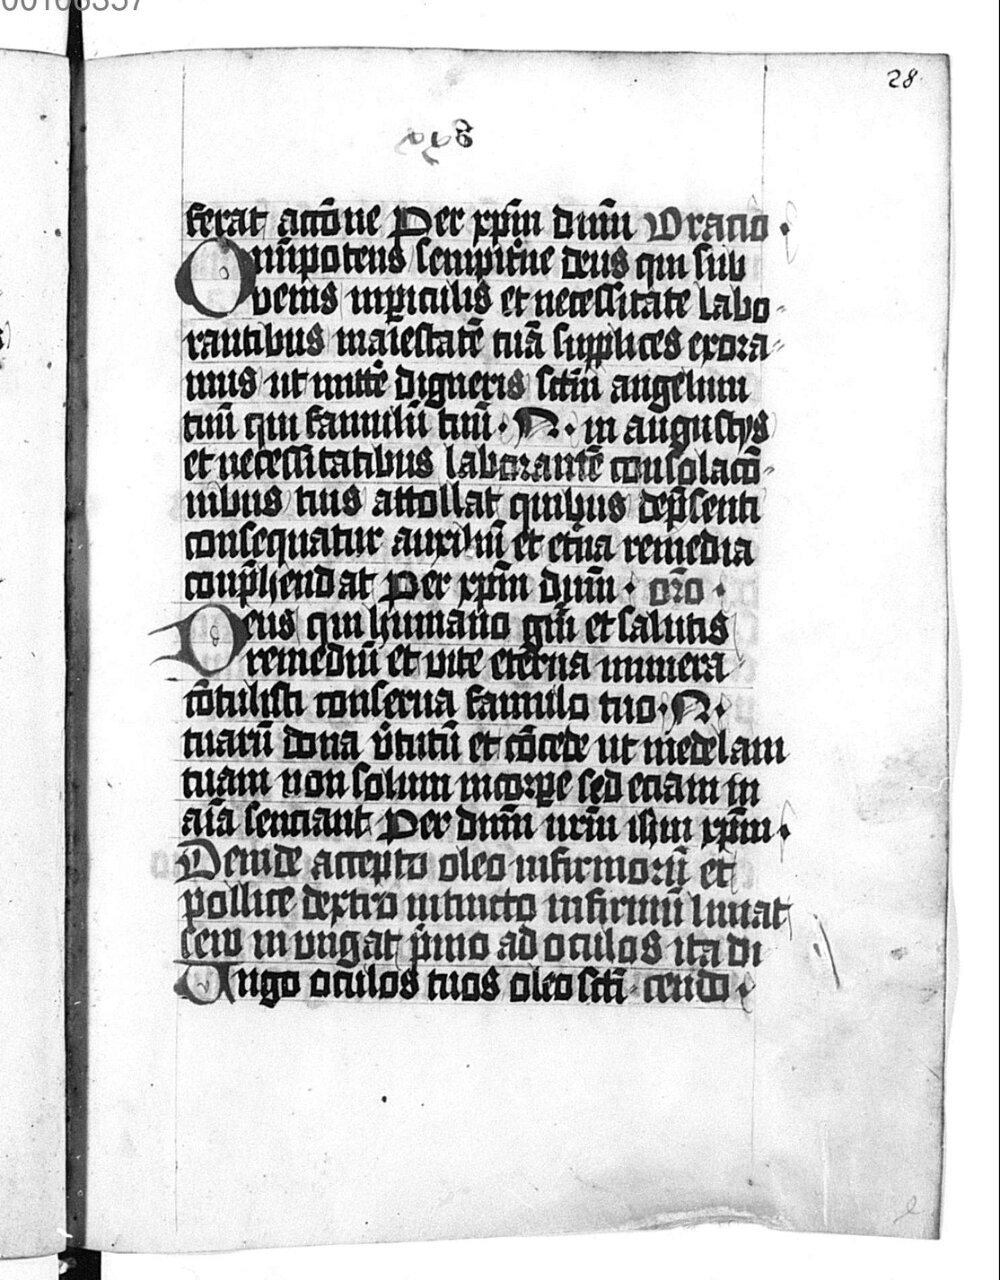 00106357
28
ferat acc̄one Per xp̄m dn̄m Oracio ·
Omīpotens sempit̄ne deus qui sub
venis in ꝑiculis et necessitate labo-
rantibus maiestatē tuā supplices exora-
mus ut mittē digneris sc̄tm̄ angelum
tuū qui famulū tuū · N · in angustijs
et necessitatibus laborantē consolacō-
nibus tuis attollat quibus dep̄senti
consequatur auxiliū et et̄na remedia
conp̄hendat Per xp̄m dn̄m · or̄o ·
Deus qui humano gn̄i et salutis
remediū et vite eterna munera
cōtulisti conserua famulo tuo · N ·
tuarū dona v̄tutū et cōcede ut medelam
tuam non solum in corꝑe sed eciam in
aīa senciant Per dn̄m nr̄m ihm xp̄m ·
Deinde accepto oleo infirmorū et
pollice dextro intincto infirmū liniat
seu in vngat p̄mo ad oculos ita di
Ungo oculos tuos oleo sc̄ti - cendo ·